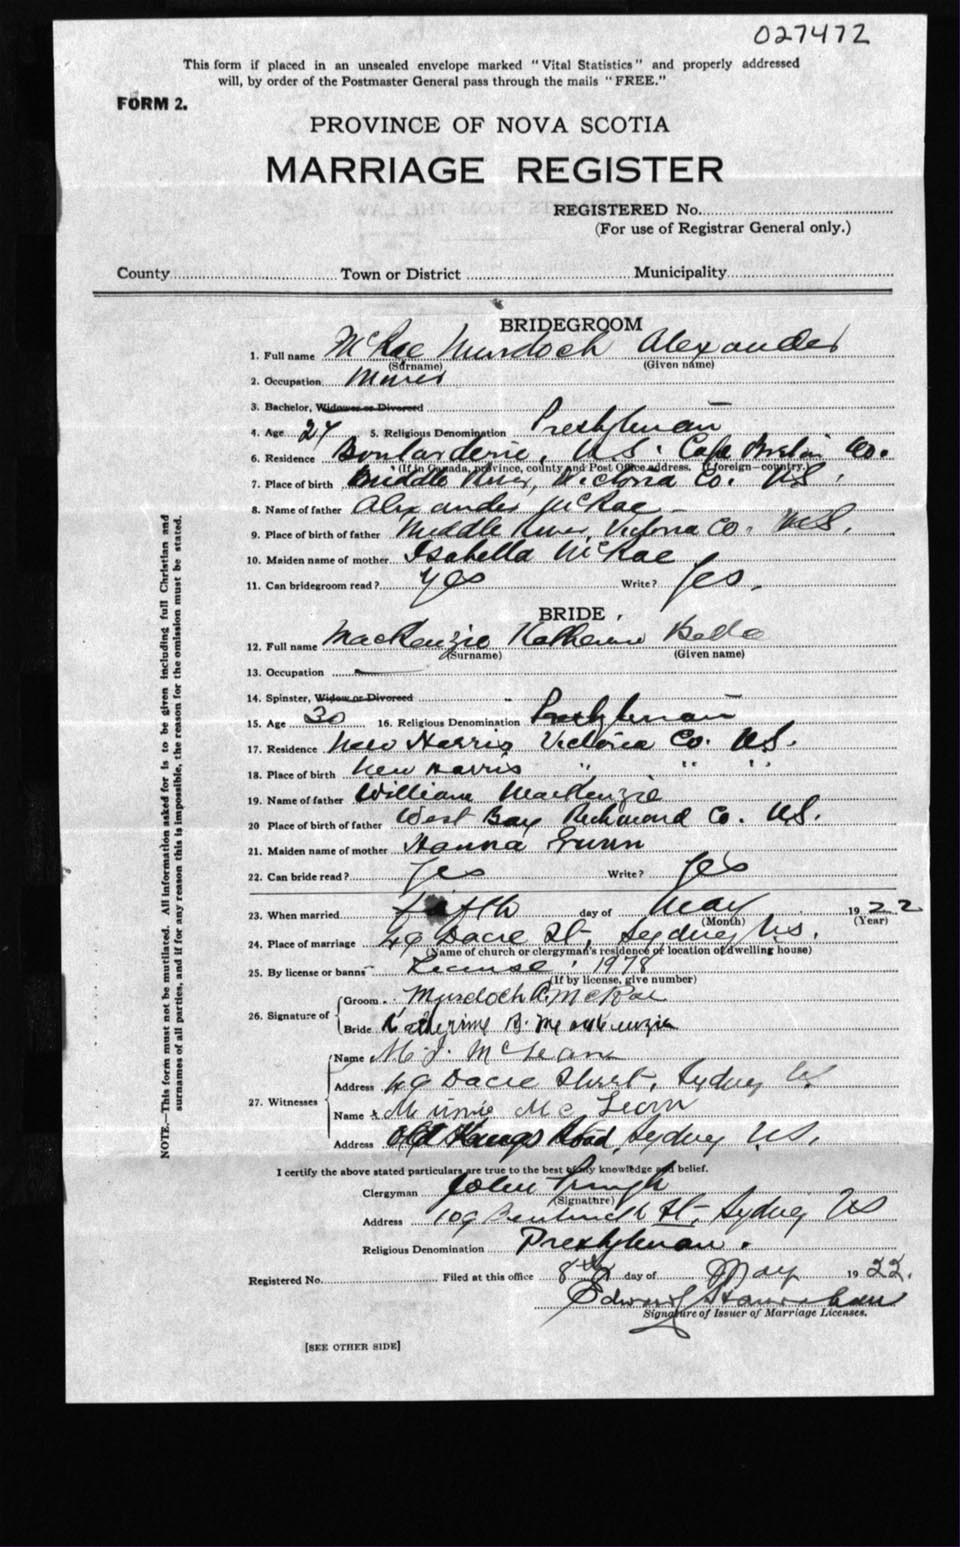 027472
This form if placed in an unsealed envelope marked "Vital Statistics" and properly addressed
will, by order of the Postmaster General pass through the mails "FREE."
FORM 2.
PROVINCE OF NOVA SCOTIA
MARRIAGE REGISTER
REGISTERED No.
(For use of Registrar General only.)
County Town or District Municipality
BRIDEGROOM
1. Full name McRae Murdoch Alexander
(Surname) (Given name)
2. Occupation Miner
3. Bachelor, Widower or Divorced
4. Age 24 5. Religious Denomination Presbyterian
6. Residence Boularderie, N.S. Cape Breton Co.
(If in Canada, province, county and Post Office address. If foreign—country.)
7. Place of birth Middle River, Victoria Co. N.S.
8. Name of father Alexander McRae
9. Place of birth of father Middle River, Victoria Co. N.S.
10. Maiden name of mother Isabella McRae
11. Can bridegroom read? Yes Write? Yes.
BRIDE
12. Full name MacKenzie Katherine Belle
(Surname) (Given name)
13. Occupation —
14. Spinster, Widow or Divorced
15. Age 30 16. Religious Denomination Presbyterian
17. Residence New Harris Victoria Co. N.S.
18. Place of birth New Harris " " "
19. Name of father William MacKenzie
20 Place of birth of father West Bay Richmond Co. N.S.
21. Maiden name of mother Hanna Gunn
22. Can bride read? Yes Write? Yes
23. When married fifth day of May 1922
(Month) (Year)
24. Place of marriage 49 Dacre St, Sydney N.S.
(Name of church or clergyman's residence or location of dwelling house)
25. By license or banns License, 1978
(If by license, give number)
26. Signature of Groom Murdoch A. McRae
Bride Katherine B. MacKenzie
27. Witnesses Name M. J. McLean
Address 49 Dacre Street, Sydney NS
Name Minnie McLean
Address Old Kings Road, Sydney N.S.
I certify the above stated particulars are true to the best of my knowledge and belief.
Clergyman John Pringle
(Signature)
Address 109 Bentinck St, Sydney NS
Religious Denomination Presbyterian.
Registered No. Filed at this office 8th day of May 1922.
Edward
Signature of Issuer of Marriage Licenses.
[SEE OTHER SIDE]
NOTE.—This form must not be mutilated. All information asked for is to be given including full Christian and
surnames of all parties, and if for any reason this is impossible, the reason for the omission must be stated.